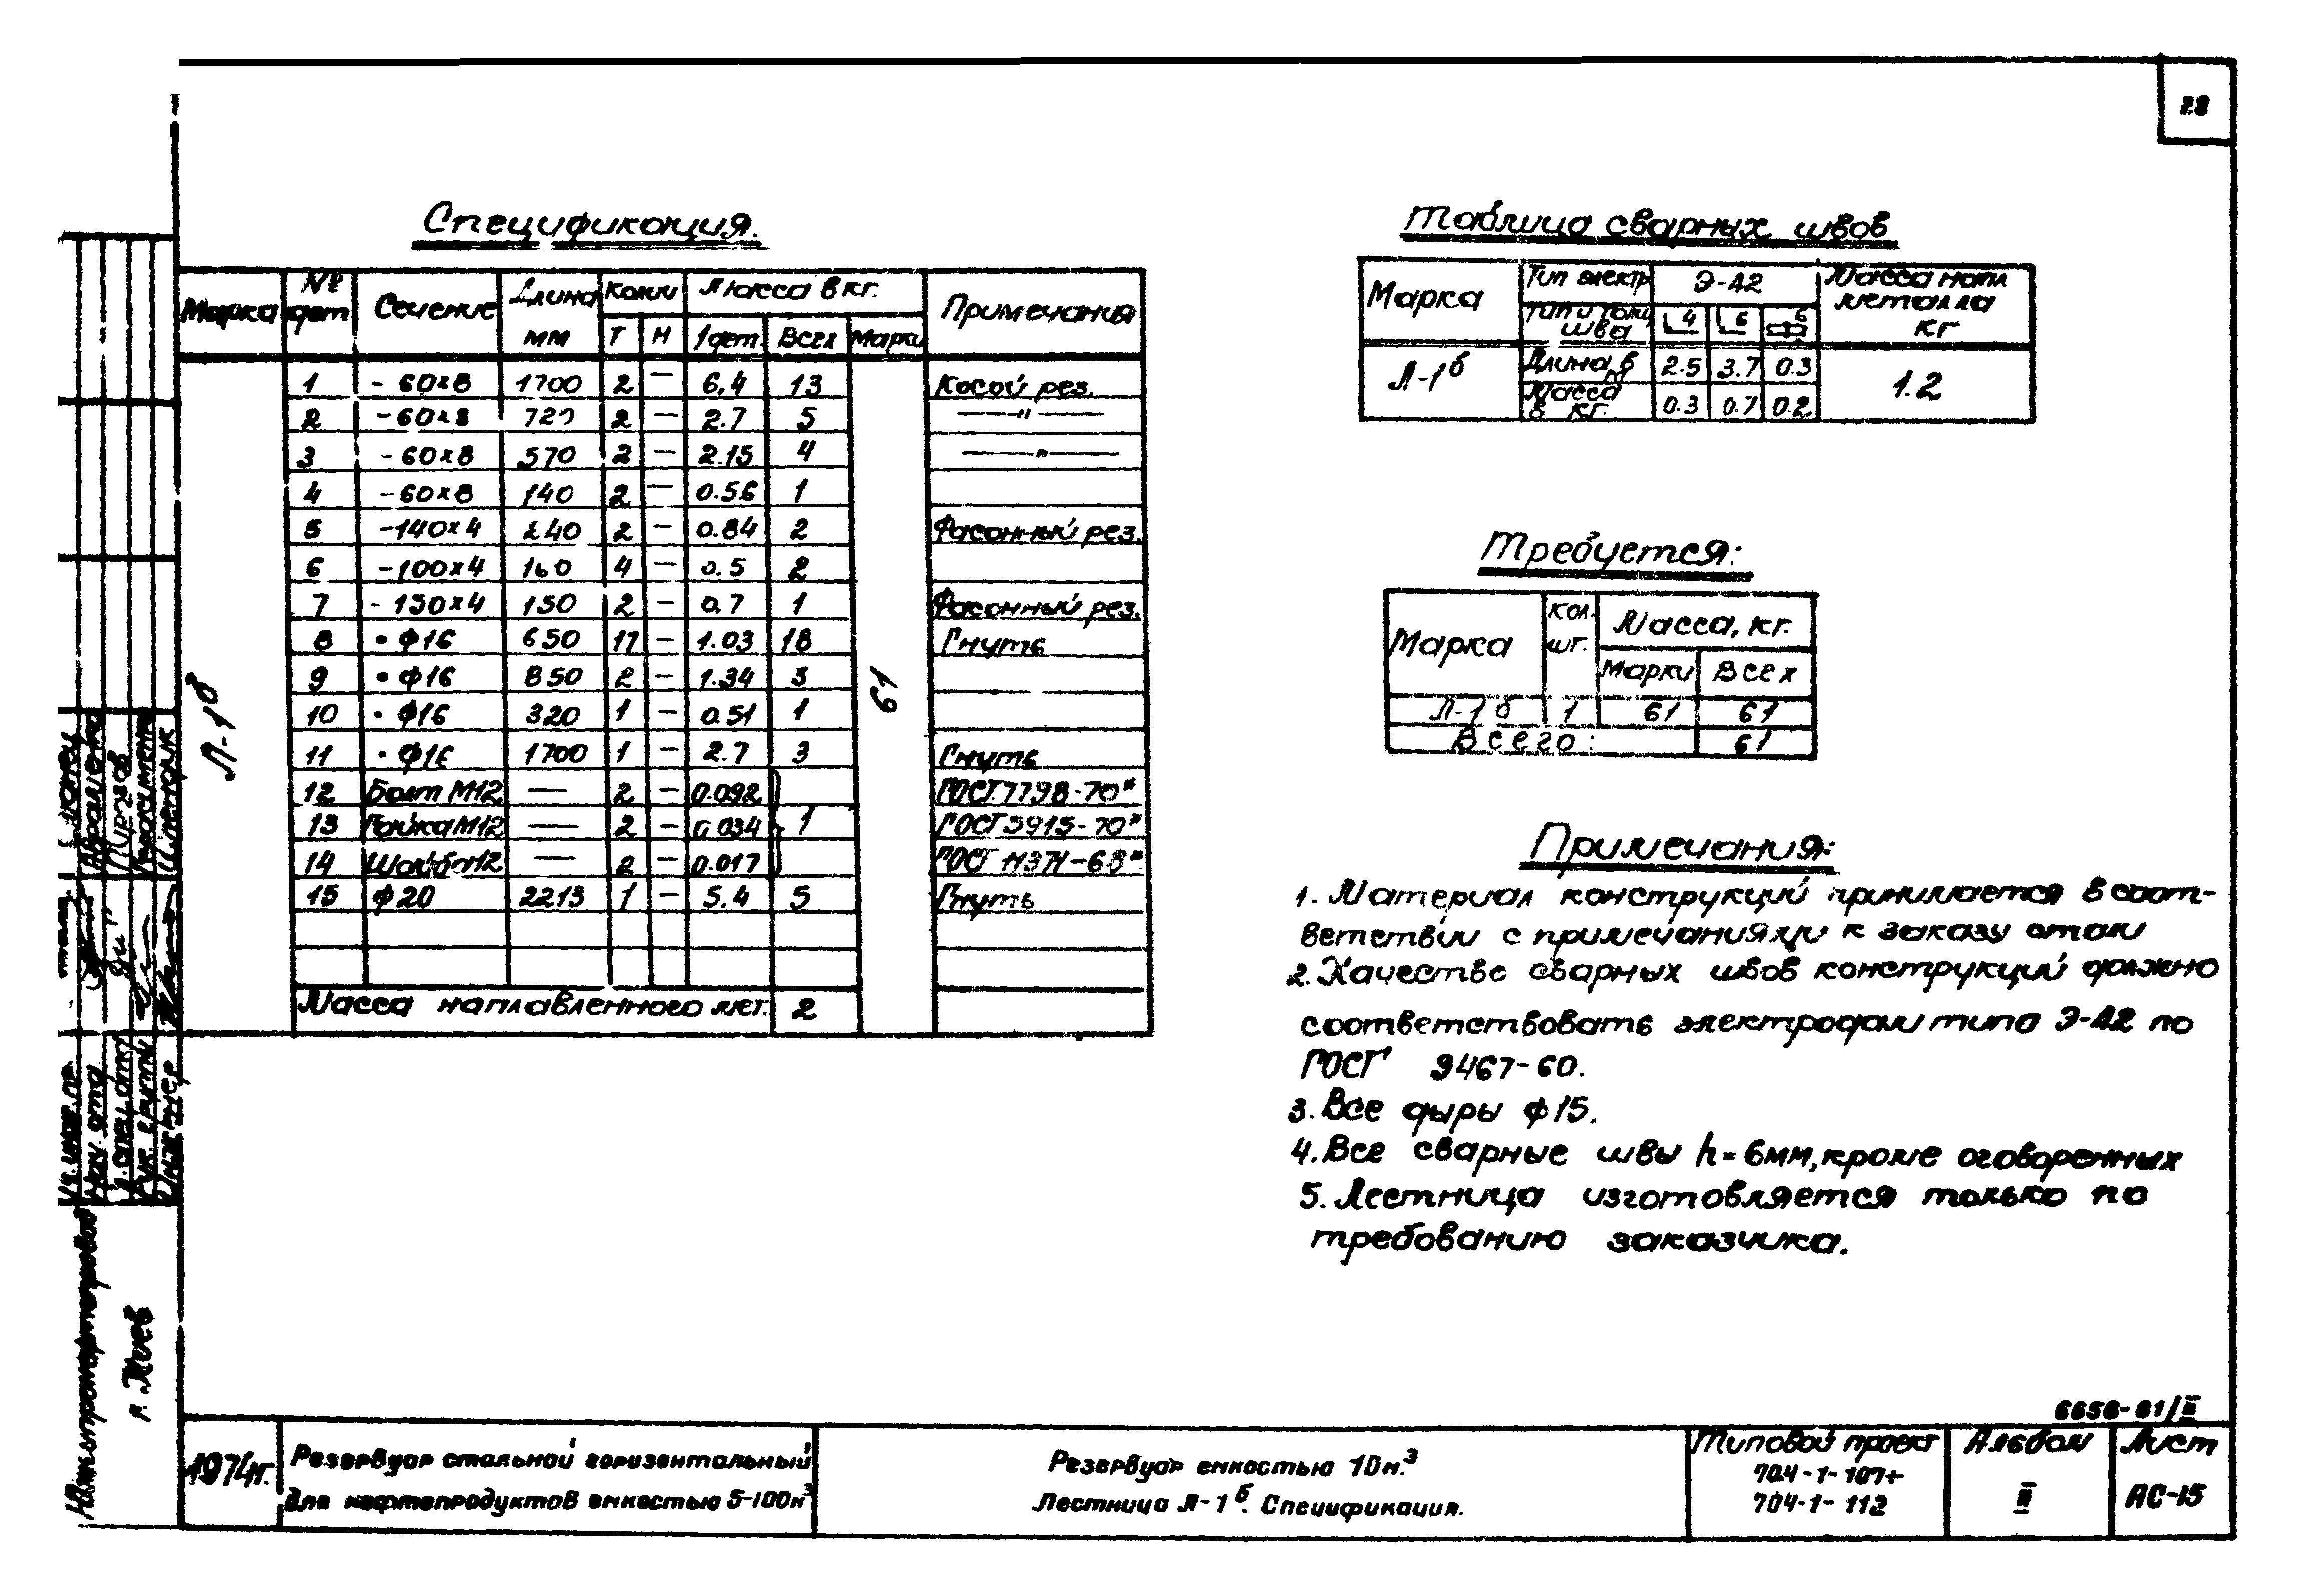 22
Спецификация.
Марка № дет Сечение Длина мм Колич Масса в кг. Примечания
Т Н 1 дет. Всех Марки
Л-1б 61
1 - 60x8 1700 2 — 6.4 13 Косой рез.
2 - 60x8 720 2 — 2.7 5 — " —
3 - 60x8 570 2 — 2.15 4 — " —
4 - 60x8 140 2 — 0.56 1
5 - 140x4 240 2 — 0.84 2 Фасонный рез.
6 - 100x4 160 4 — 0.5 2
7 - 150x4 150 2 — 0.7 1 Фасонный рез.
8 • ф16 650 17 — 1.03 18 Гнуть
9 • ф16 850 2 — 1.34 3
10 • ф16 320 1 — 0.51 1
11 • ф16 1700 1 — 2.7 3 Гнуть
12 Болт М12 — 2 — 0.092 ГОСТ 7798-70*
13 Гайка М12 — 2 — 0.034 1 ГОСТ 5915-70*
14 Шайба 12 — 2 — 0.017 ГОСТ 11371-68*
15 ф20 2213 1 — 5.4 5 Гнуть
Масса наплавленного мет. 2
Таблица сварных швов
Марка Тип электр Э-42 Масса напл металла кг
Тип и толщ шва 4 6 6
Л-1б Длина в м 2.5 3.7 0.3 1.2
Масса в кг. 0.3 0.7 0.2
Требуется:
Марка кол. шт. Масса, кг.
Марки Всех
Л-1б 1 61 61
Всего: 61
Примечания:
1. Материал конструкций принимается в соот-
ветствии с примечаниями к заказу стали
2. Качество сварных швов конструкций должно
соответствовать электродам типа Э-42 по
ГОСТ 9467-60.
3. Все дыры ф15.
4. Все сварные швы h=6мм, кроме оговоренных
5. Лестница изготовляется только по
требованию заказчика.
Нач. отдела
Гл. спец. отд
Рук. группы
Инженер
Южгипронефтепровод
г. Киев
6656-61/II
1974г.
Резервуар стальной горизонтальный
для нефтепродуктов емкостью 5-100м³
Резервуар емкостью 10м.³
Лестница Л-1б. Спецификация.
Типовой проект
704-1-107÷
704-1-112
Альбом
II
Лист
АС-15